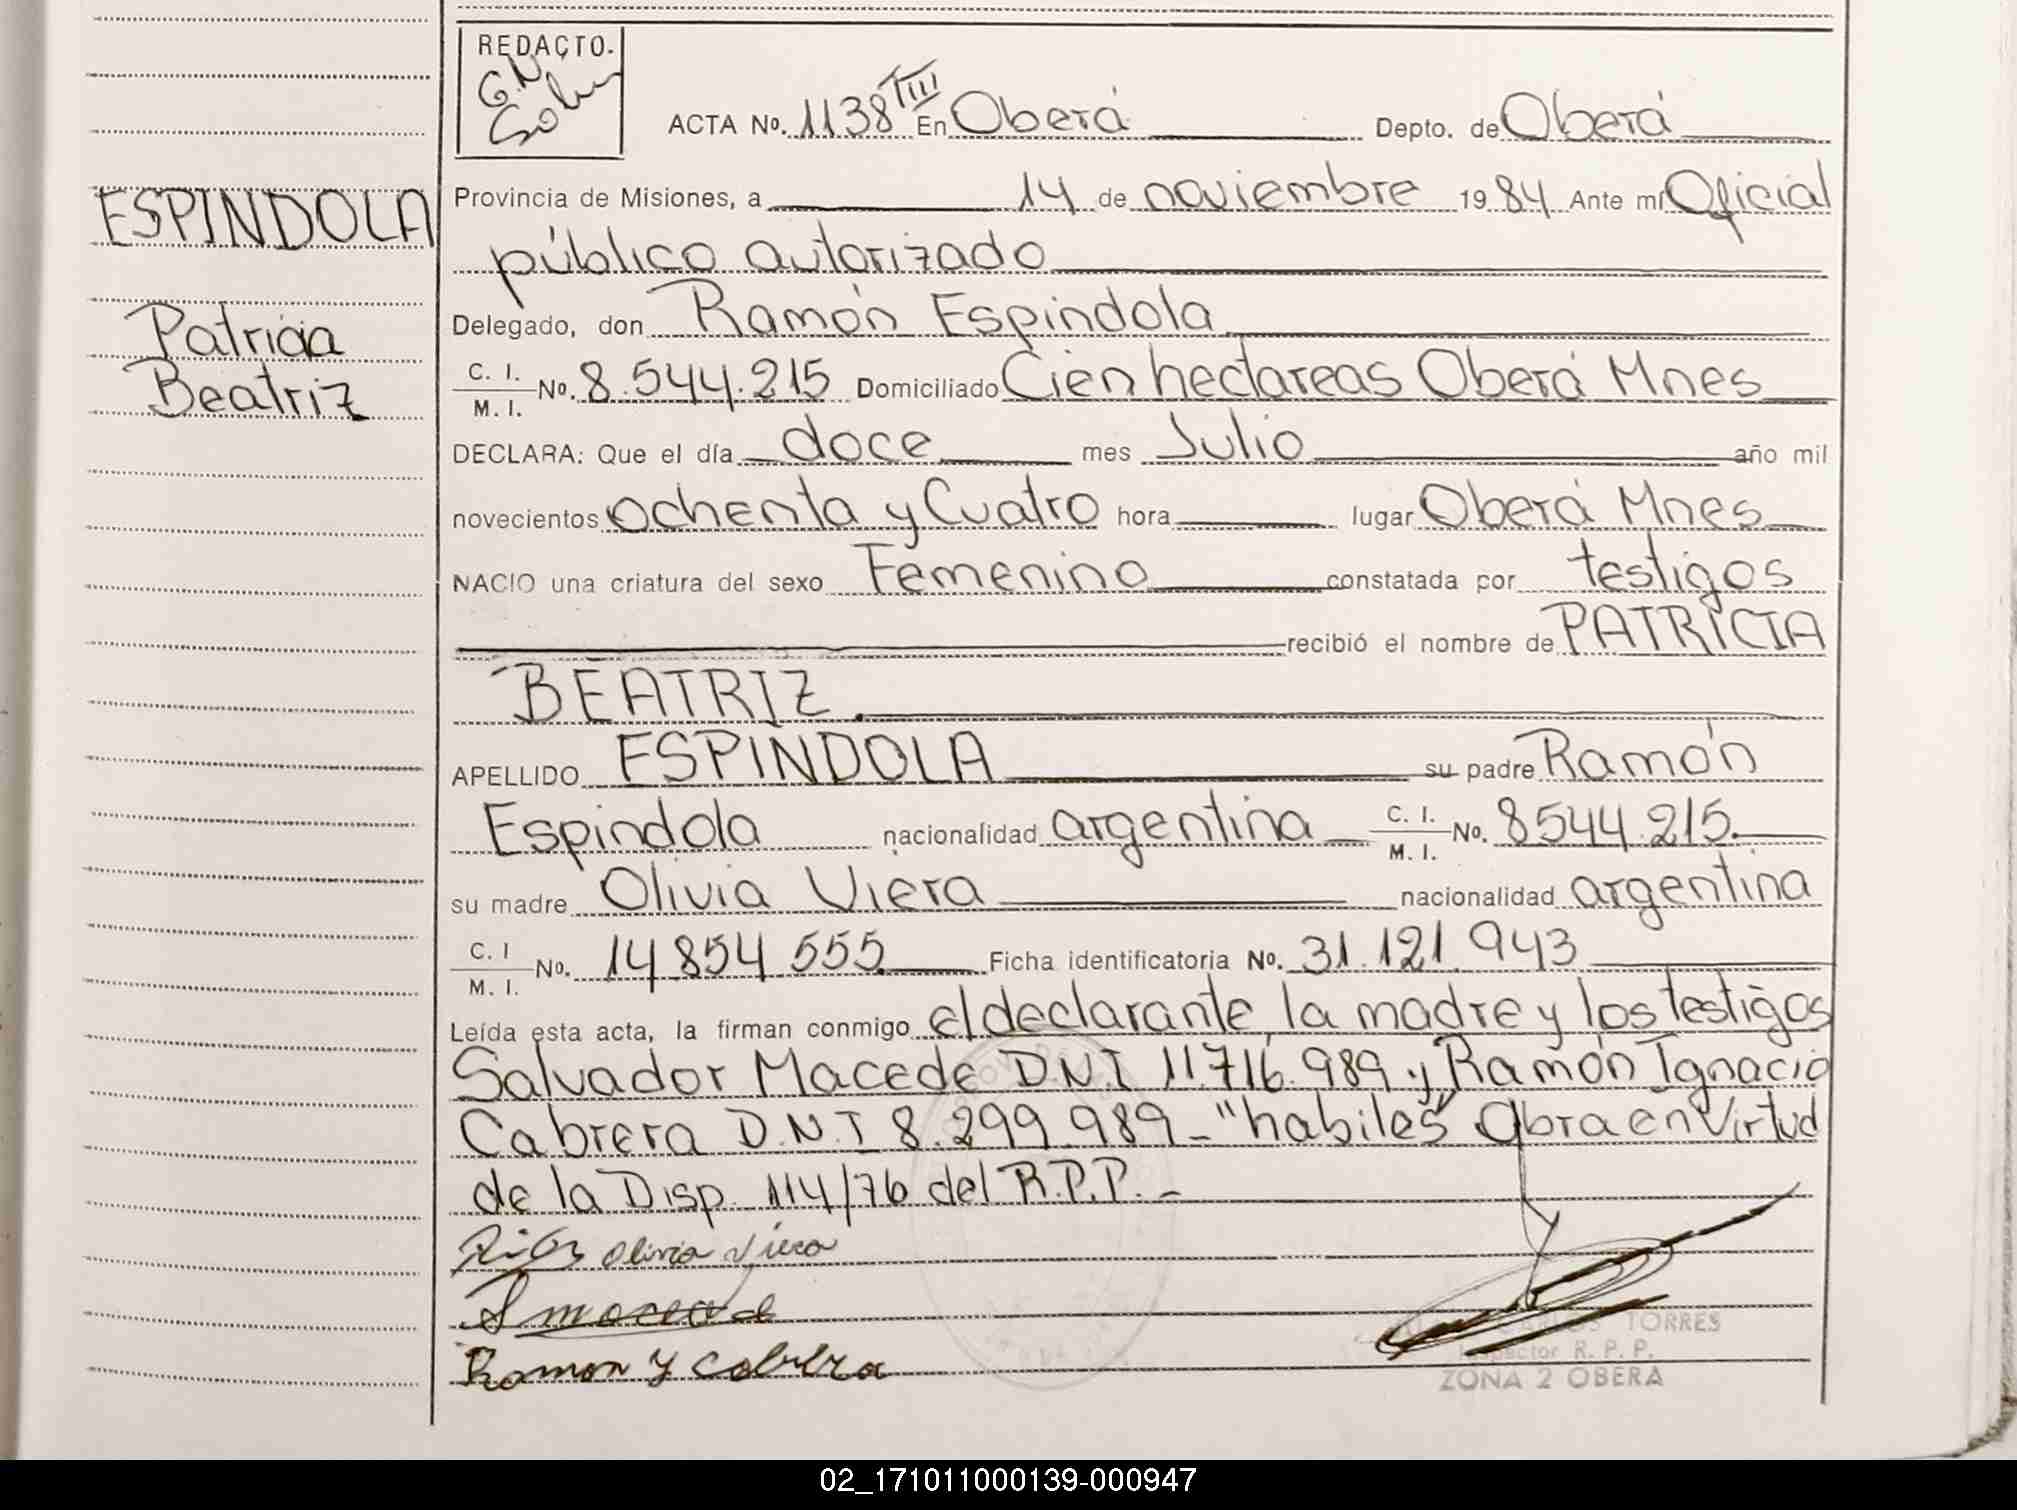 REDACTO.
G.N.
ACTA No. 1138 TIII En Oberá Depto. de Oberá
ESPINDOLA
Patricia
Beatriz
Provincia de Misiones, a 14 de noviembre 1984 Ante mí Oficial
público autorizado
Delegado, don Ramón Espindola
C. I.
M. I. No. 8.544.215 Domiciliado Cien hectareas Oberá Mnes
DECLARA: Que el día doce mes Julio año mil
novecientos ochenta y Cuatro hora lugar Oberá Mnes
NACIO una criatura del sexo Femenino constatada por testigos
recibió el nombre de PATRICIA
BEATRIZ
APELLIDO ESPINDOLA su padre Ramón
Espindola nacionalidad argentina C. I. M. I. No. 8544.215.
su madre Olivia Viera nacionalidad argentina
C. I
M. I. No. 14 854 555 Ficha identificatoria No. 31.121.943
Leída esta acta, la firman conmigo el declarante, la madre y los testigos
Salvador Macede D.N.I 11.716.989 y Ramón Ignacio
Cabrera D.N.I 8.299.989 - "habiles" Obra en Virtud
de la Disp. 114/76 del R.P.P. -
Olivia Viera
Ramon Y Cabrera
CARLOS TORRES
Inspector R. P. P.
ZONA 2 OBERA
02_171011000139-000947